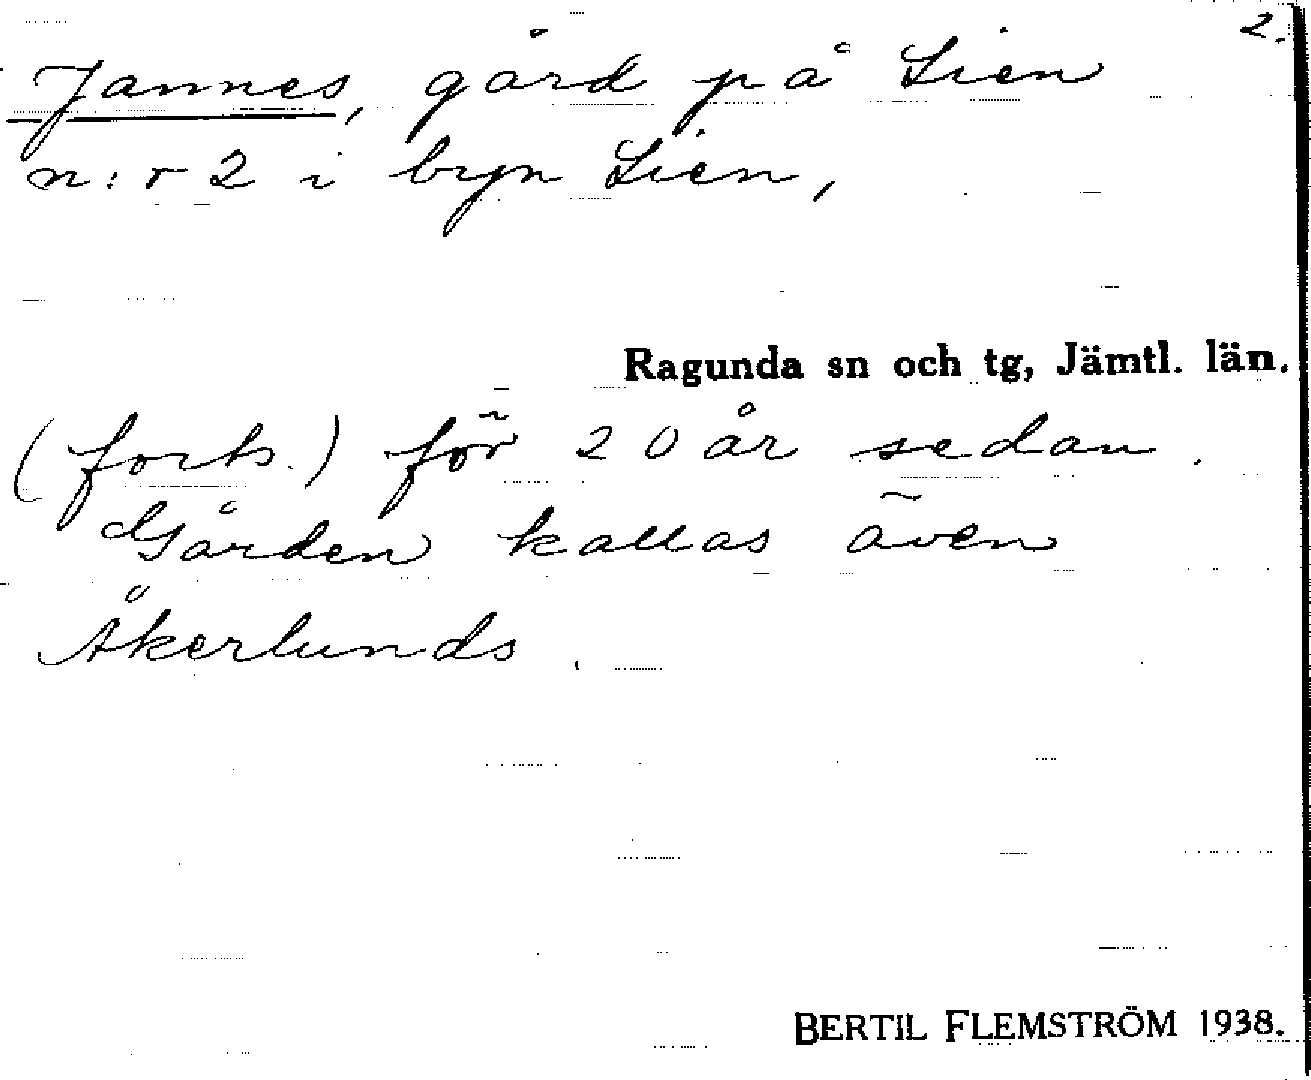 2.
Jannes, gård på Lien
n:r 2 i byn Lien,
Ragunda sn och tg, Jämtl. län.
(forts.) för 20 år sedan.
Gården kallas även
Åkerlunds.
BERTIL FLEMSTRÖM 1938.